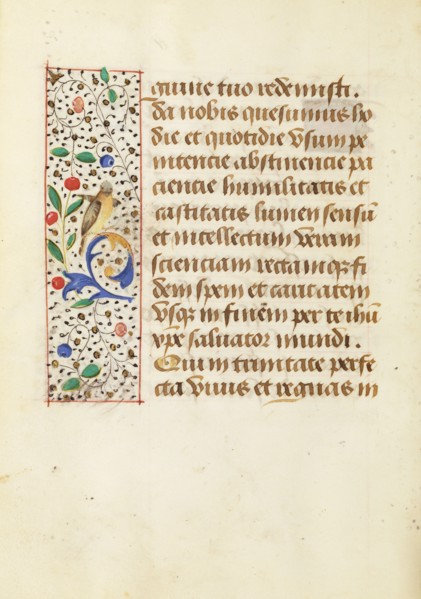 guine tuo redemisti.
da nobis quesumus ho
die et quotidie vsum pe
nitencie abstinencie pa
ciencie humilitatis et
castitatis lumen sensuū
et intellectum veram
scienciam rectamqȝ fi
dem spem et caritatem
vsqȝ in finem per te ihū
xp̄e saluator mundi.
Qui in trinitate perfe
cta viuis et regnas in